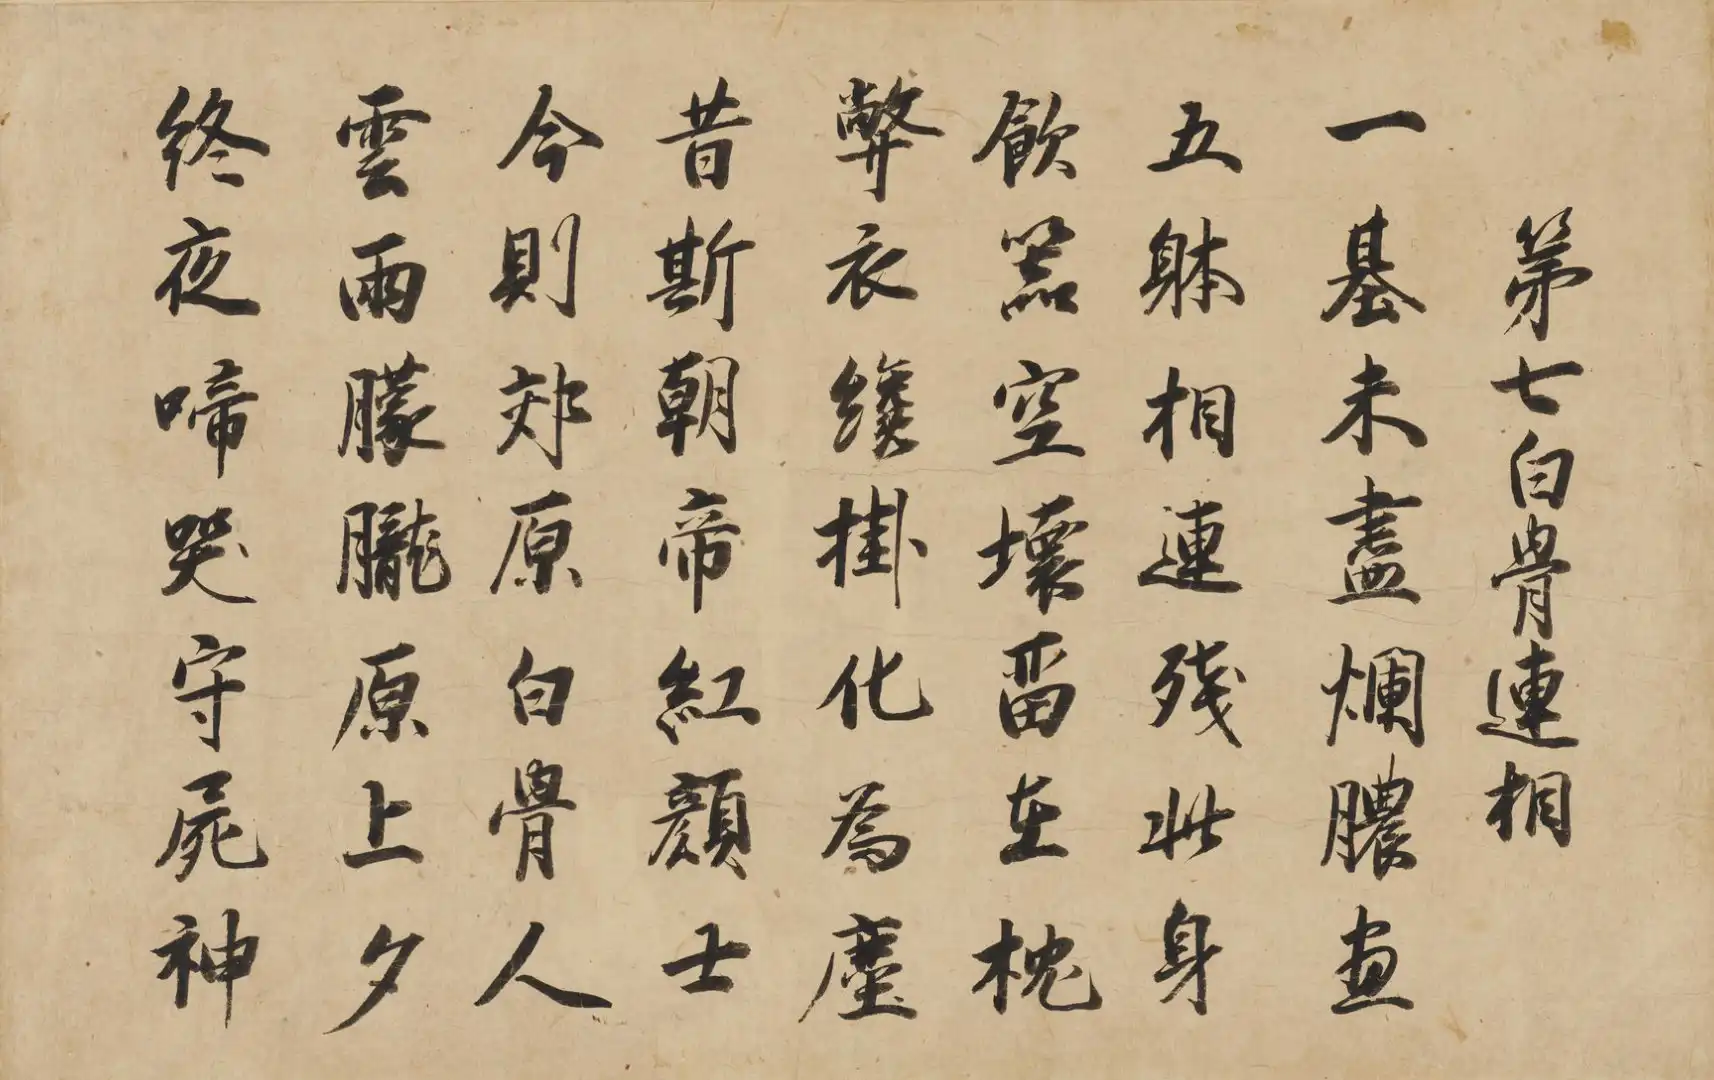 第七白骨連相
一基未盡爛膿畫
五躰相連殘此身
飲器空壞留在枕
弊衣纔掛化為塵
昔斯朝帝紅顔士
今則郊原白骨人
雲雨朦朧原上夕
終夜啼哭守屍神